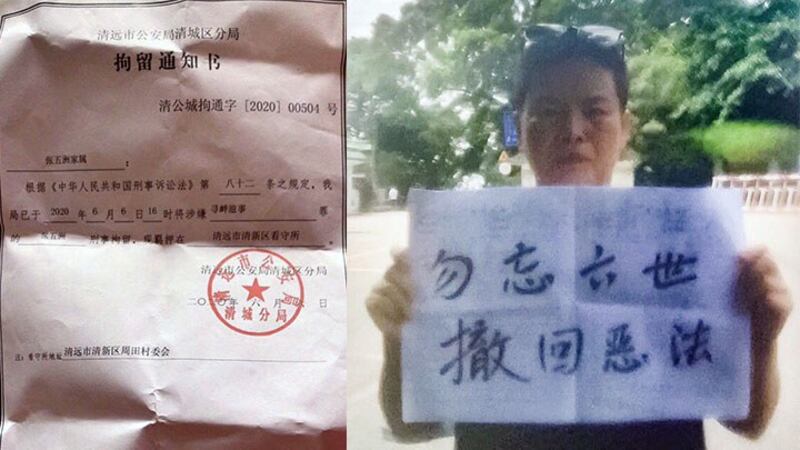 清远市公安局清城区分局
拘留通知书
清公城拘通字[2020]00504号
张五洲家属:
根据《中华人民共和国刑事诉讼法》第 八十二 条之规定,我
局已于 2020 年 6 月 6 日 16 时将涉嫌 寻衅滋事 罪
的 张五洲 刑事拘留,现羁押在 清远市清新区看守所。
清远市公安局清城区分局
二〇二〇年六月 日
清远市公安局
清城分局
注:看守所地址清远市清新区周田村委会
勿忘六世
撤回恶法